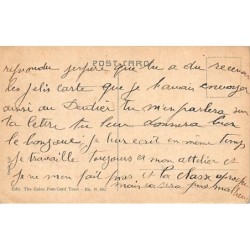 POST CARD
repondu j'espère que tu a du recevoir
les jolis carte que je t'avais envoyer
ainsi au tu m'en parlera sur
ta lettre tu leur donnera bien
le bonjour je leur ecrit en même temps
je travaille toujours et mon attelier et
je ne m'en fait pas et la classe
mais ca sera pas
Edit. The Cairo Post-Card Trust